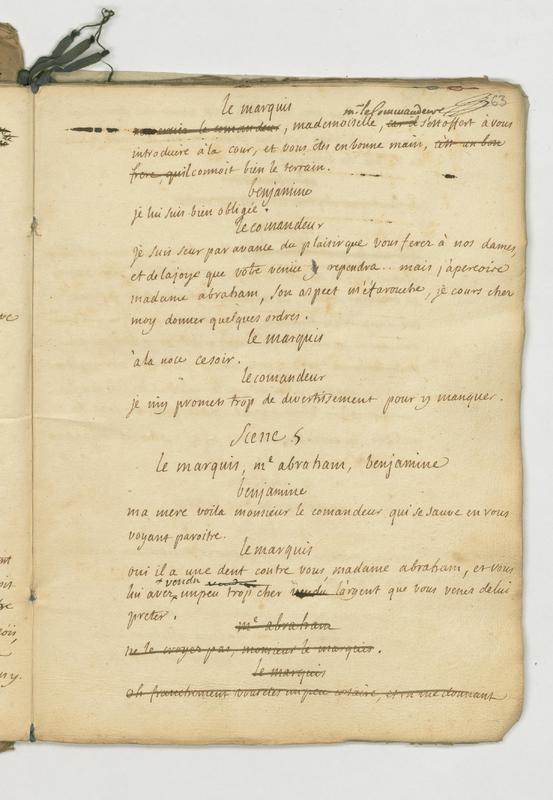 63
le marquis
mr le Commandeure
le comandeur, mademoiselle, car il s'est offert à vous
introduire à la cour, et vous êtes en bonne main, c'est un bon
frere, qu'il connoit bien le terrain.
benjamine
je lui suis bien obligée.
le comandeur
je suis seur par avance du plaisir que vous ferez à nos dames,
et de la joye que votre venüe y rependra... mais j'aperçoire
madame abraham, son aspect m'éfarouche, je cours chez
moy donner quelques ordres.
le marquis
à la noce ce soir.
le comandeur
je m'y promets trop de divertissement pour y manquer.
Scene 5
le marquis, me abraham, benjamine
benjamine
ma mere voila monsieur le comandeur qui se sauve en vous
voyant paroitre.
le marquis
oui il a une dent contre vous madame abraham, et vous
vendu
lui avez un peu trop cher vendu l'argent que vous venez de lui
preter.
me abraham
ne le croyez pas, monsieur le marquis.
le marquis
oh franchement vous etes un peu corsaire, et en me donnant